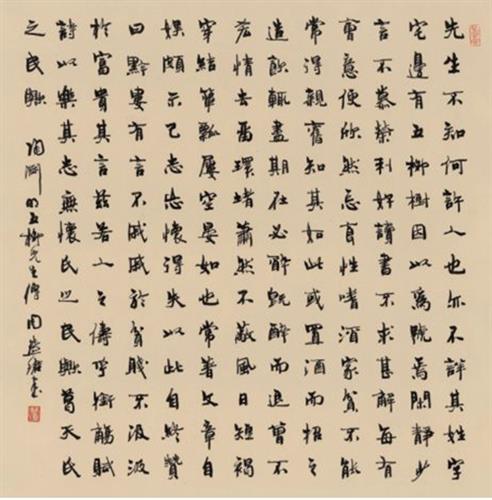 先生不知何許人也亦不詳其姓字
宅邊有五柳樹因以為號焉閑靜少
言不慕榮利好讀書不求甚解每有
會意便欣然忘食性嗜酒家貧不能
常得親舊知其如此或置酒而招之
造飲輒盡期在必醉既醉而退曾不
吝情去留環堵蕭然不蔽風日短褐
穿結簞瓢屢空晏如也常著文章自
娛頗示己志忘懷得失以此自終贊
曰黔婁有言不戚戚於貧賤不汲汲
於富貴其言茲若人之儔乎銜觴賦
詩以樂其志無懷氏之民歟葛天氏
之民歟
陶淵明五柳先生傳